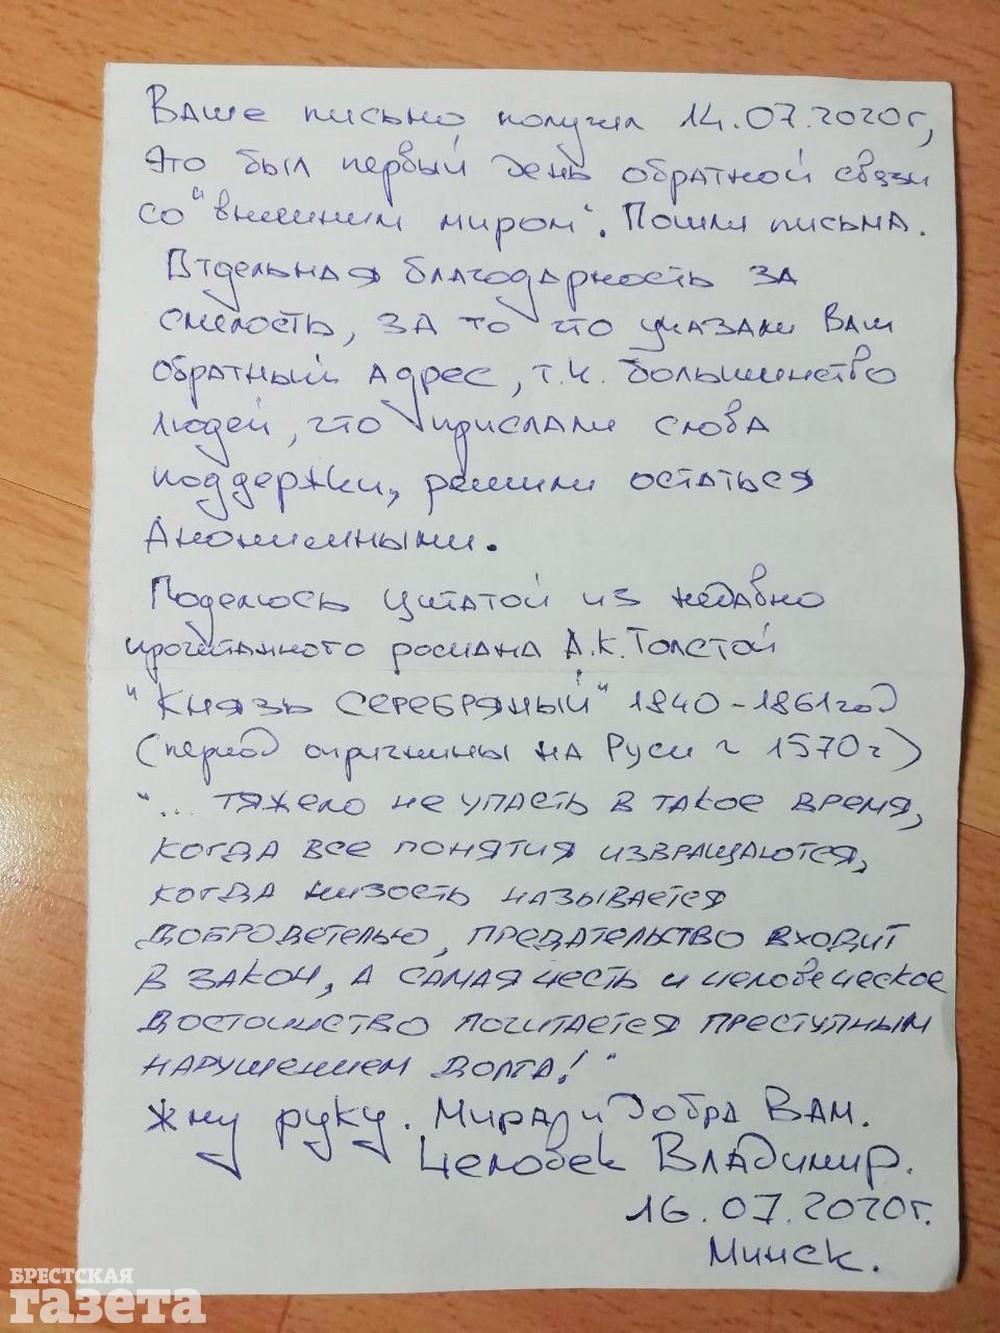 Ваше письмо получил 14.07.2020г,
Это был первый день обратной связи
со "внешним миром". Пошли письма.
Отдельная благодарность за
смелость, за то что указали Ваш
обратный адрес, т.к. большинство
людей, что прислали слова
поддержки, решили остаться
Анонимными.
Поделюсь цитатой из недавно
прочитанного романа А.К.Толстой
"Князь Серебряный" 1840-1861год
(период опричнины на Руси ~ 1570г)
"... тяжело не упасть в такое время,
когда все понятия извращаются,
когда низость называется
добродетелью, предательство входит
в закон, а самая честь и человеческое
достоинство почитается преступным
нарушением долга!"
Жму руку. Мира и добра Вам.
Человек Владимир.
16.07.2020г.
Минск.
БРЕСТСКАЯ
газета